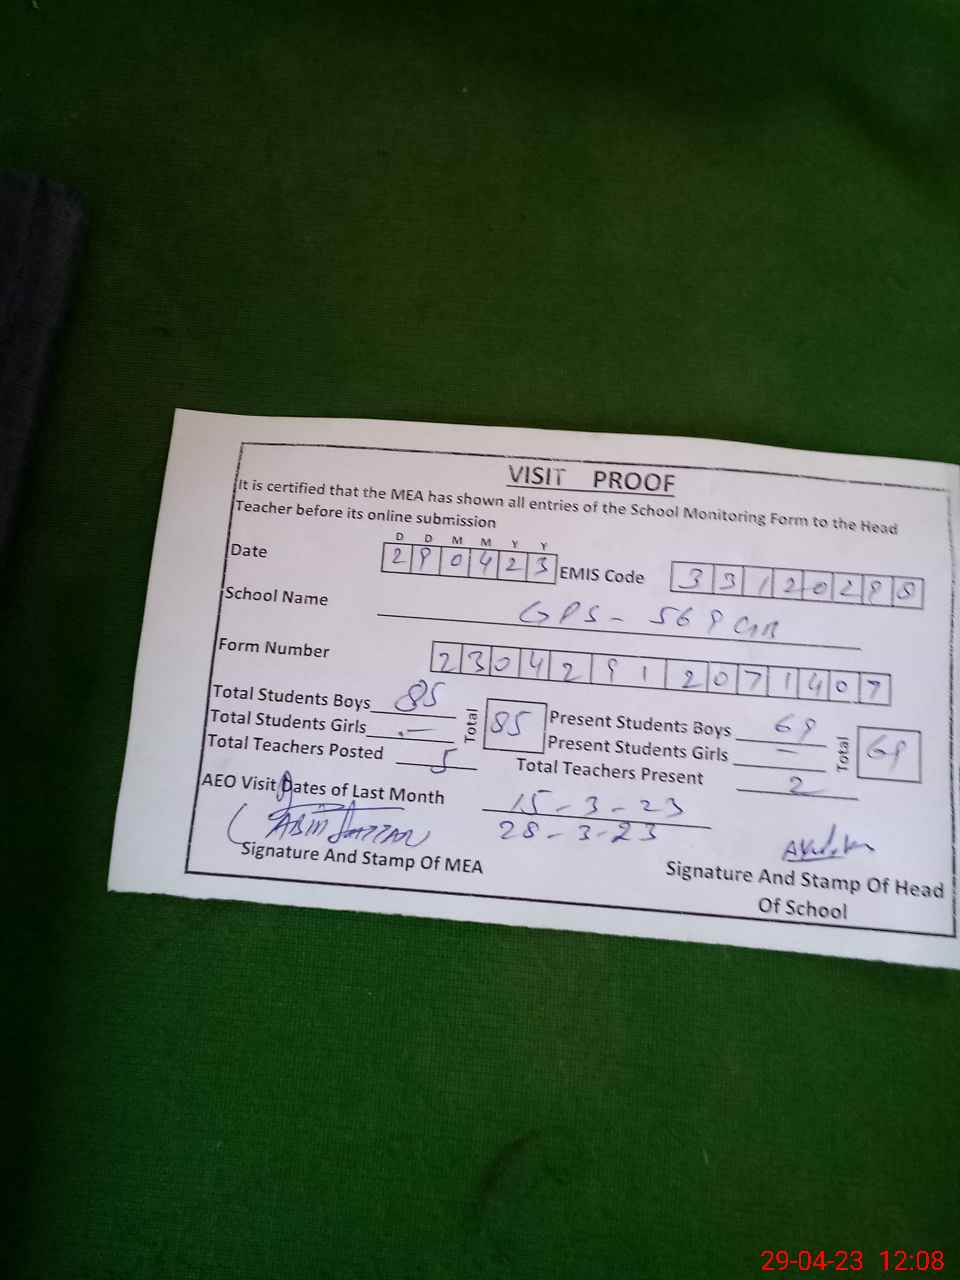 VISIT PROOF
It is certified that the MEA has shown all entries of the School Monitoring Form to the Head
Teacher before its online submission
D D M M Y Y
Date 290423 EMIS Code 33120298
School Name GPS - 569 GB
Form Number 23042912071407
Total Students Boys 85 Total 85 Present Students Boys 69 Total 69
Total Students Girls - Present Students Girls -
Total Teachers Posted 5 Total Teachers Present 2
AEO Visit Dates of Last Month 15-3-23
28-3-23
Signature And Stamp Of MEA
Signature And Stamp Of Head
Of School
29-04-23 12:08